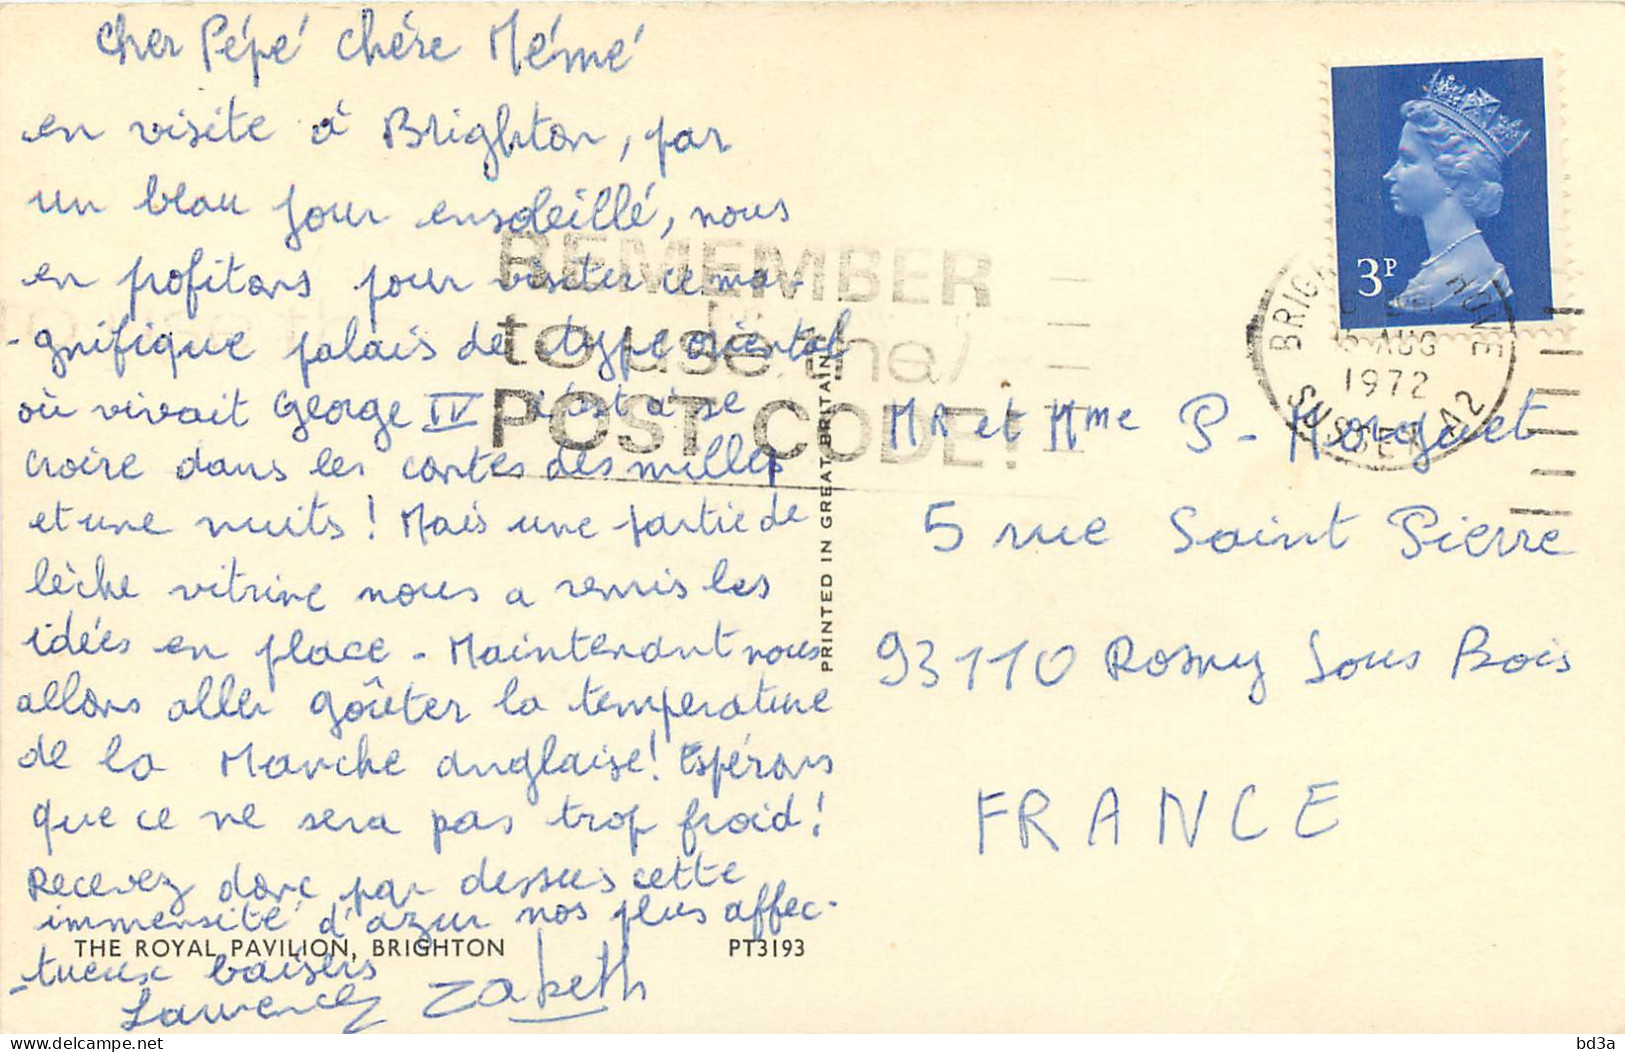 Cher Pépé chère Mémé
en visite à Brighton, par
un beau jour ensoleillé, nous
en profitons pour visiter ce ma-
-gnifique palais de type oriental
où vivait George IV c'est à se
croire dans les contes des milles
et une nuits ! Mais une partie de
lèche vitrine nous a remis les
idées en place - Maintenant nous
allons aller goûter la temperature
de la Manche anglaise ! Espérons
que ce ne sera pas trop froid !
Recevez donc par dessus cette
immensité d'azur nos plus affec-
-tueux baisers
Laurence Zabeth
THE ROYAL PAVILION, BRIGHTON PT3193
PRINTED IN GREAT BRITAIN
REMEMBER
to use the
POST CODE!
3P
BRIGH HOVE
AUG
1972
SUSSEX A2
Mr et Mme P- Horguet
5 rue Saint Pierre
93110 Rosny Sous Bois
FRANCE
delcampe.net
bd3a